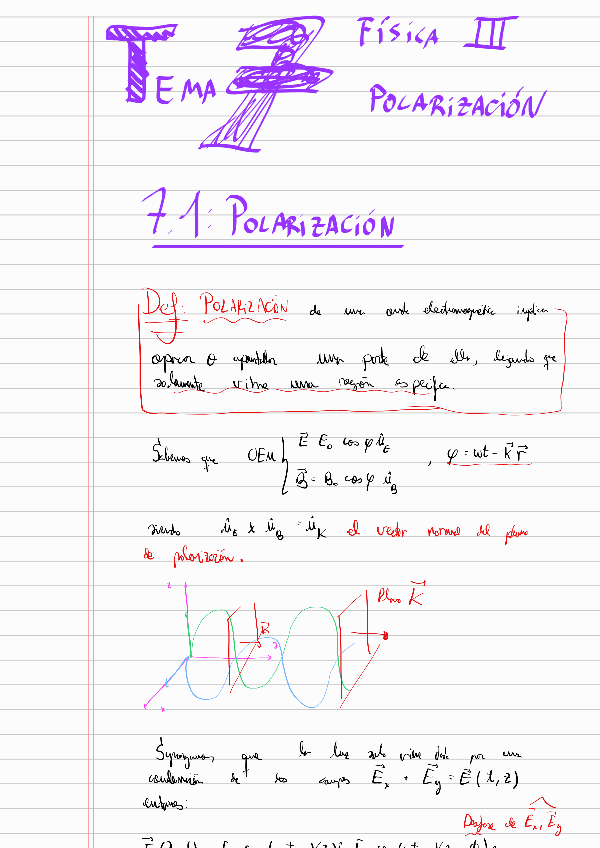 TEMA 7 FÍSICA III
POLARIZACIÓN
7.1: POLARIZACIÓN
Def: POLARIZACIÓN de una onda electromagnética implica
opacar o apantallar una parte de ella, dejando que
solamente vibre una región específica.
Sabemos que OEM { E⃗ E₀ cos φ û_E
B⃗ = B₀ cos φ û_B , φ = wt - k⃗ r⃗
siendo û_E x û_B = û_K el vector normal del plano
de polarización.
z
Plano K⃗
k⃗
x
Supongamos que la luz solo vibre dada por una
combinación de los campos E⃗x + E⃗y = E⃗(t, z)
entonces:
Desfase de E⃗x, E⃗y